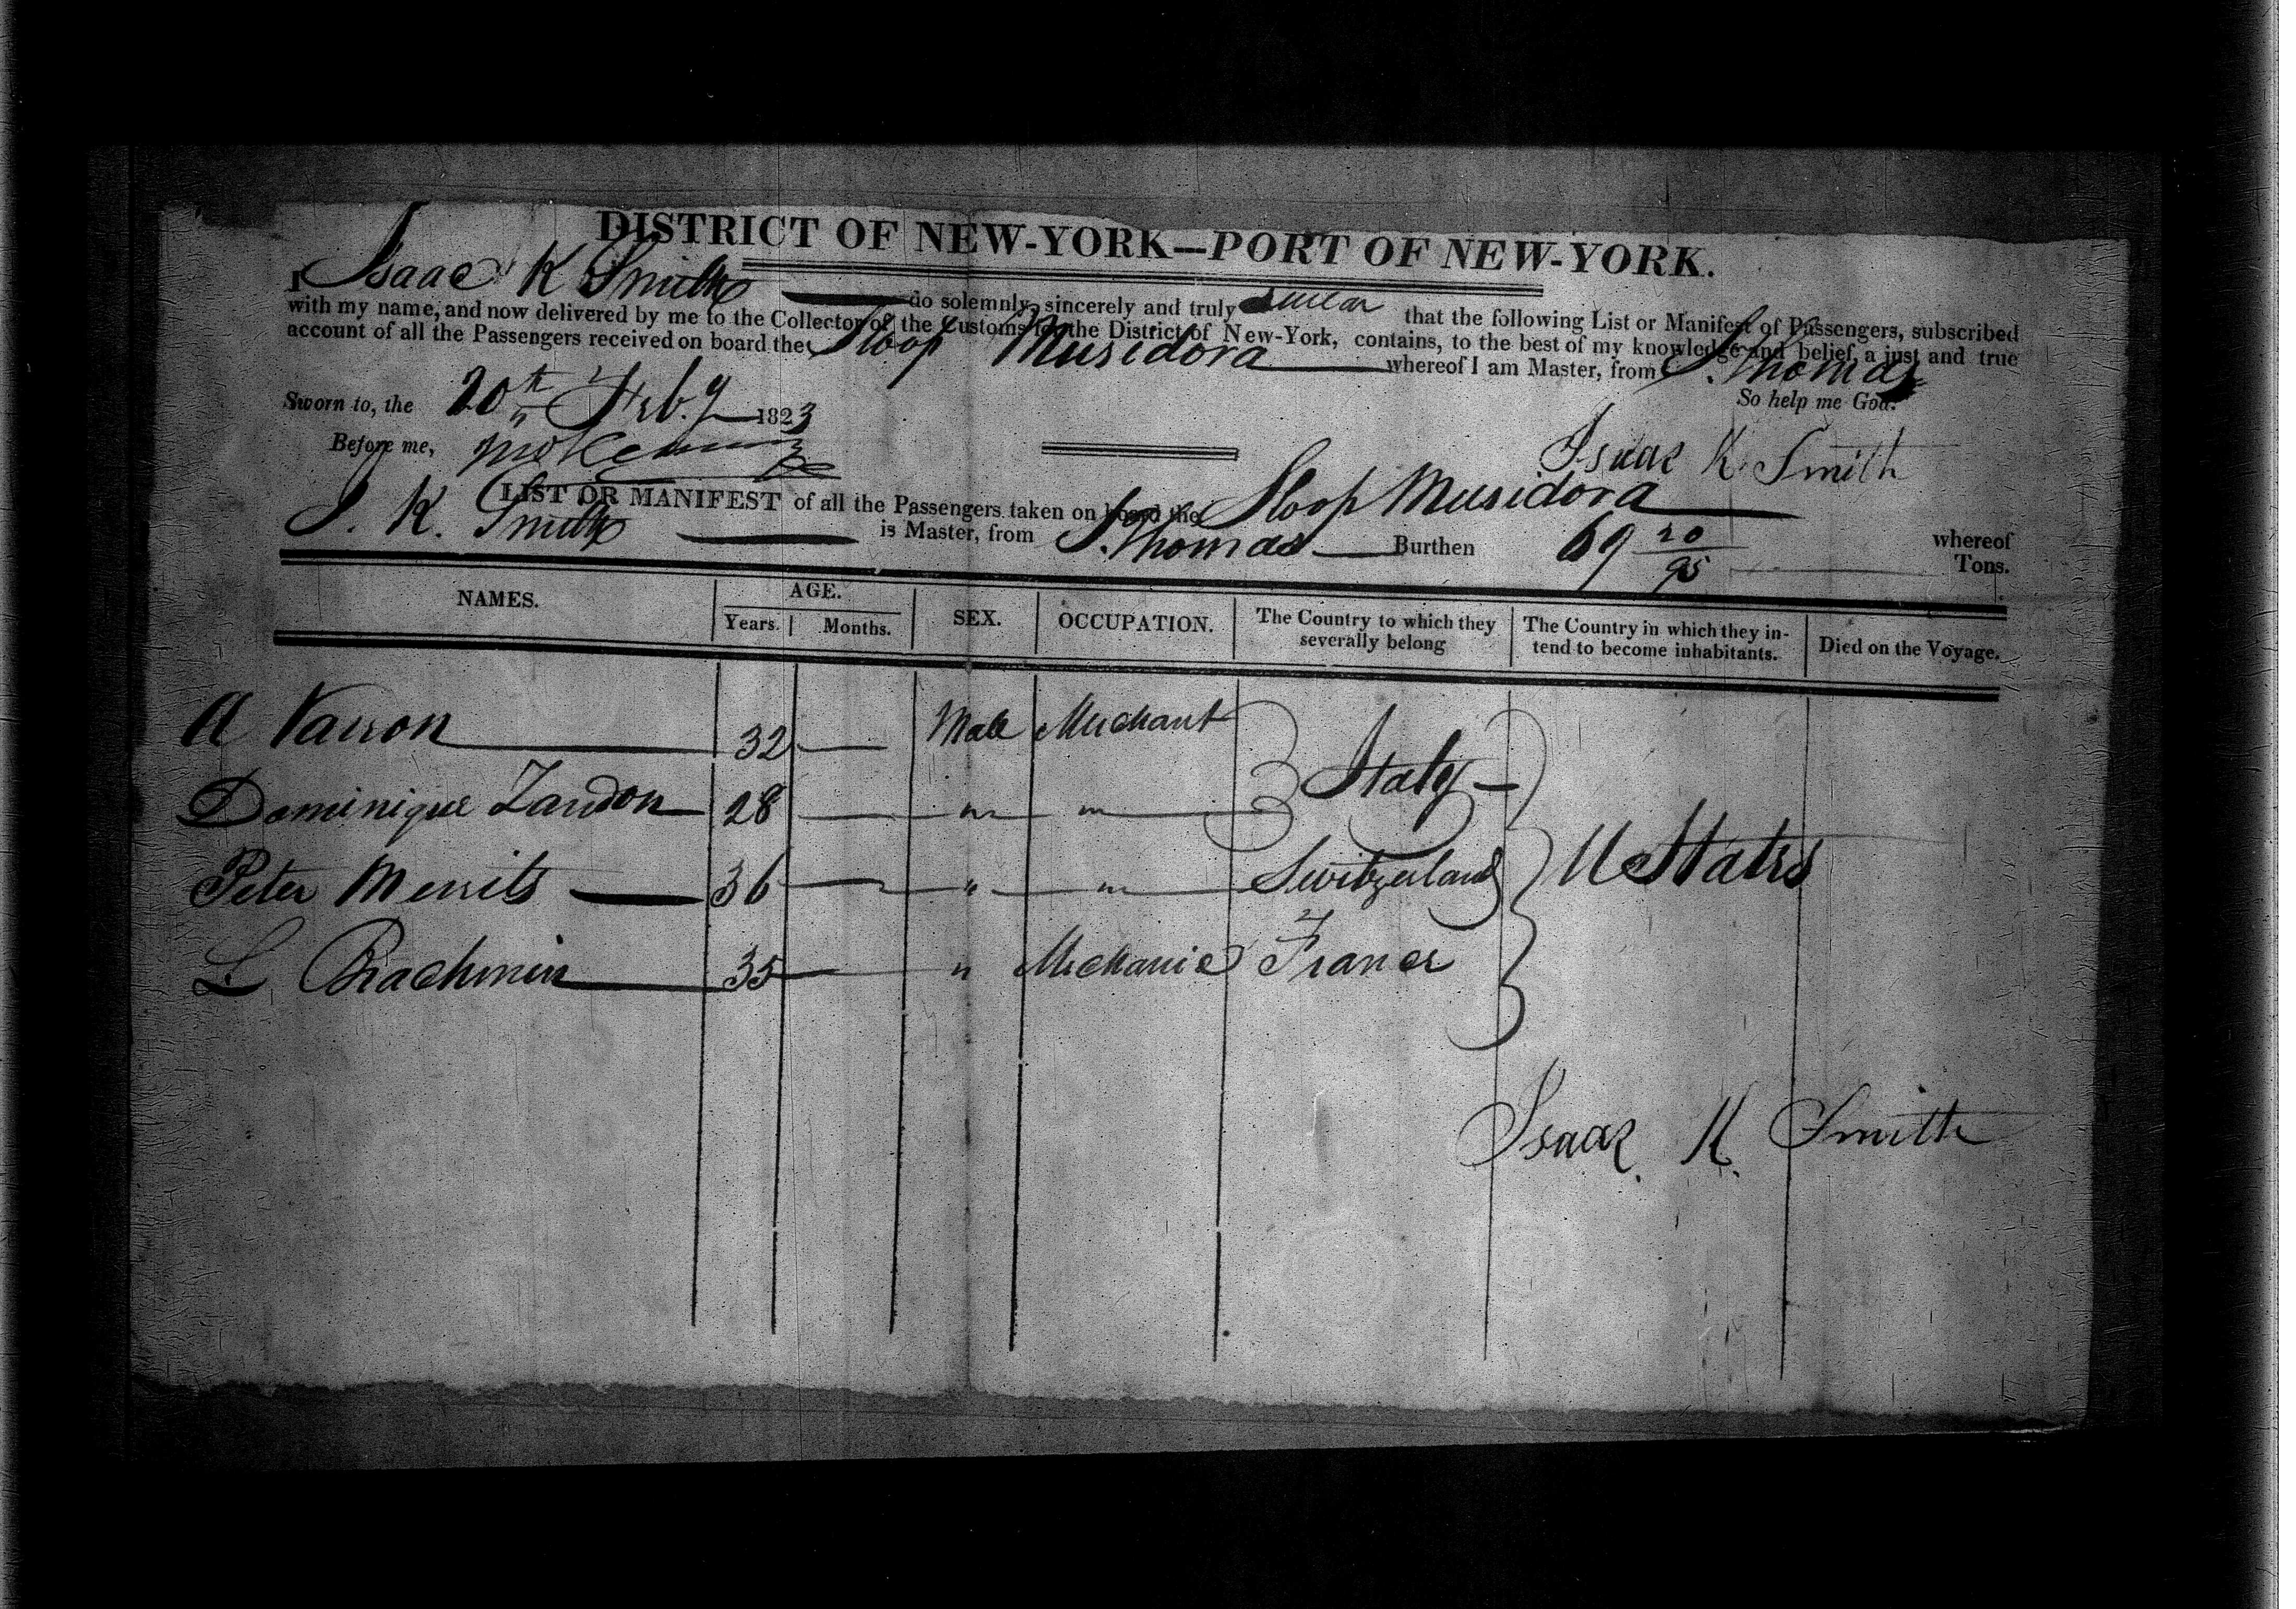 DISTRICT OF NEW-YORK—PORT OF NEW-YORK.
I Isaac K Smith do solemnly, sincerely and truly swear that the following List or Manifest of Passengers, subscribed
with my name, and now delivered by me to the Collector of the Customs for the District of New-York, contains, to the best of my knowledge and belief, a just and true
account of all the Passengers received on board the Sloop Musidora whereof I am Master, from St. Thomas
So help me God.
Sworn to, the 20th Feby 1823
Before me,
Isaac K. Smith
LIST OR MANIFEST of all the Passengers taken on board the Sloop Musidora whereof
I. K. Smith is Master, from St. Thomas Burthen 69 20/95 Tons.
NAMES. AGE. SEX. OCCUPATION. The Country to which they severally belong The Country in which they intend to become inhabitants. Died on the Voyage.
Years. Months.
A 32 Male Merchant Italy
Dominique 28 " "
Peter Merrits 36 " " Switzerland U States
L 35 " Mechanic France
Isaac K. Smith